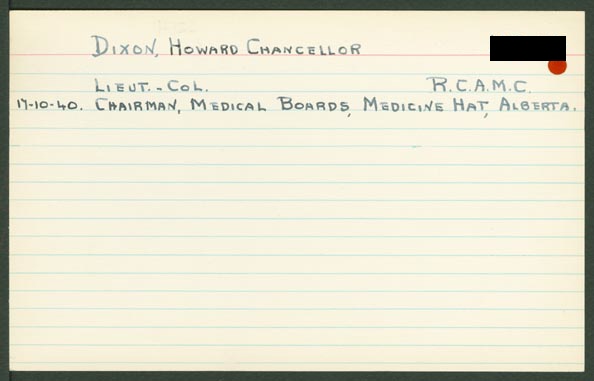 Dixon, Howard Chancellor
Lieut.-Col. R.C.A.M.C.
17-10-40. Chairman, Medical Boards, Medicine Hat, Alberta.